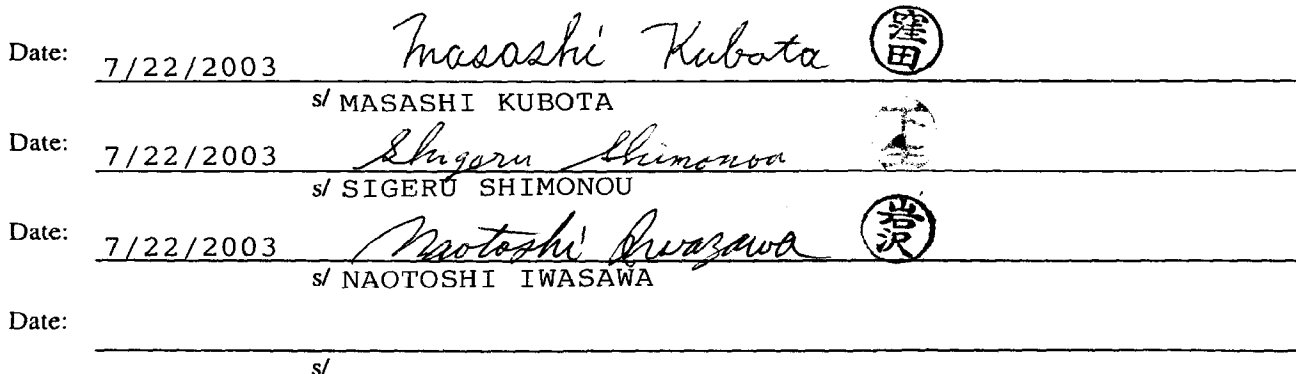 Date: 7/22/2003 Masashi Kubota 窪田
s/ MASASHI KUBOTA
Date: 7/22/2003 Shigeru Shimonou
s/ SIGERU SHIMONOU
Date: 7/22/2003 Naotoshi Iwazawa 岩沢
s/ NAOTOSHI IWASAWA
Date:
s/